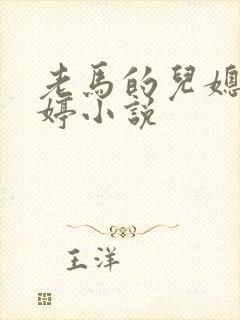 老馬的兒媳
婷小說
王洋